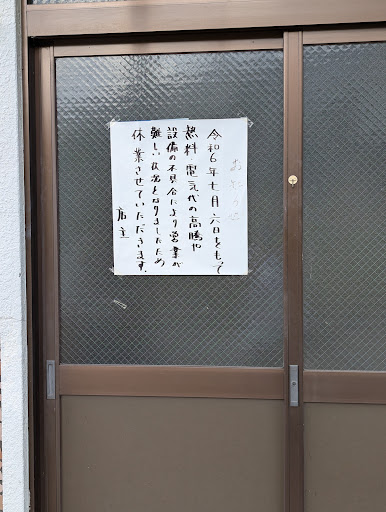 おしらせ
令和6年七月六日をもって
燃料・電気代の高騰や
設備の不具合により営業が
難しい状況となりましたため
休業させていただきます。
店主